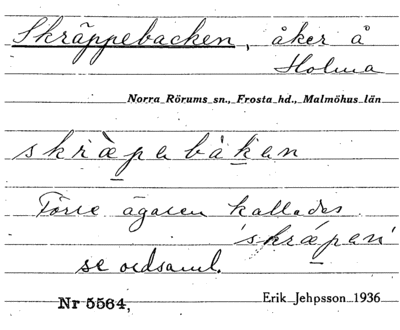 Skräppebacken, åker å
Holma
Norra Rörums sn., Frosta hd., Malmöhus län
skræ̀pabàkan
Förre ägaren kallades
'skræpan'
se ordsaml.
Nr 5564,
Erik Jehpsson 1936